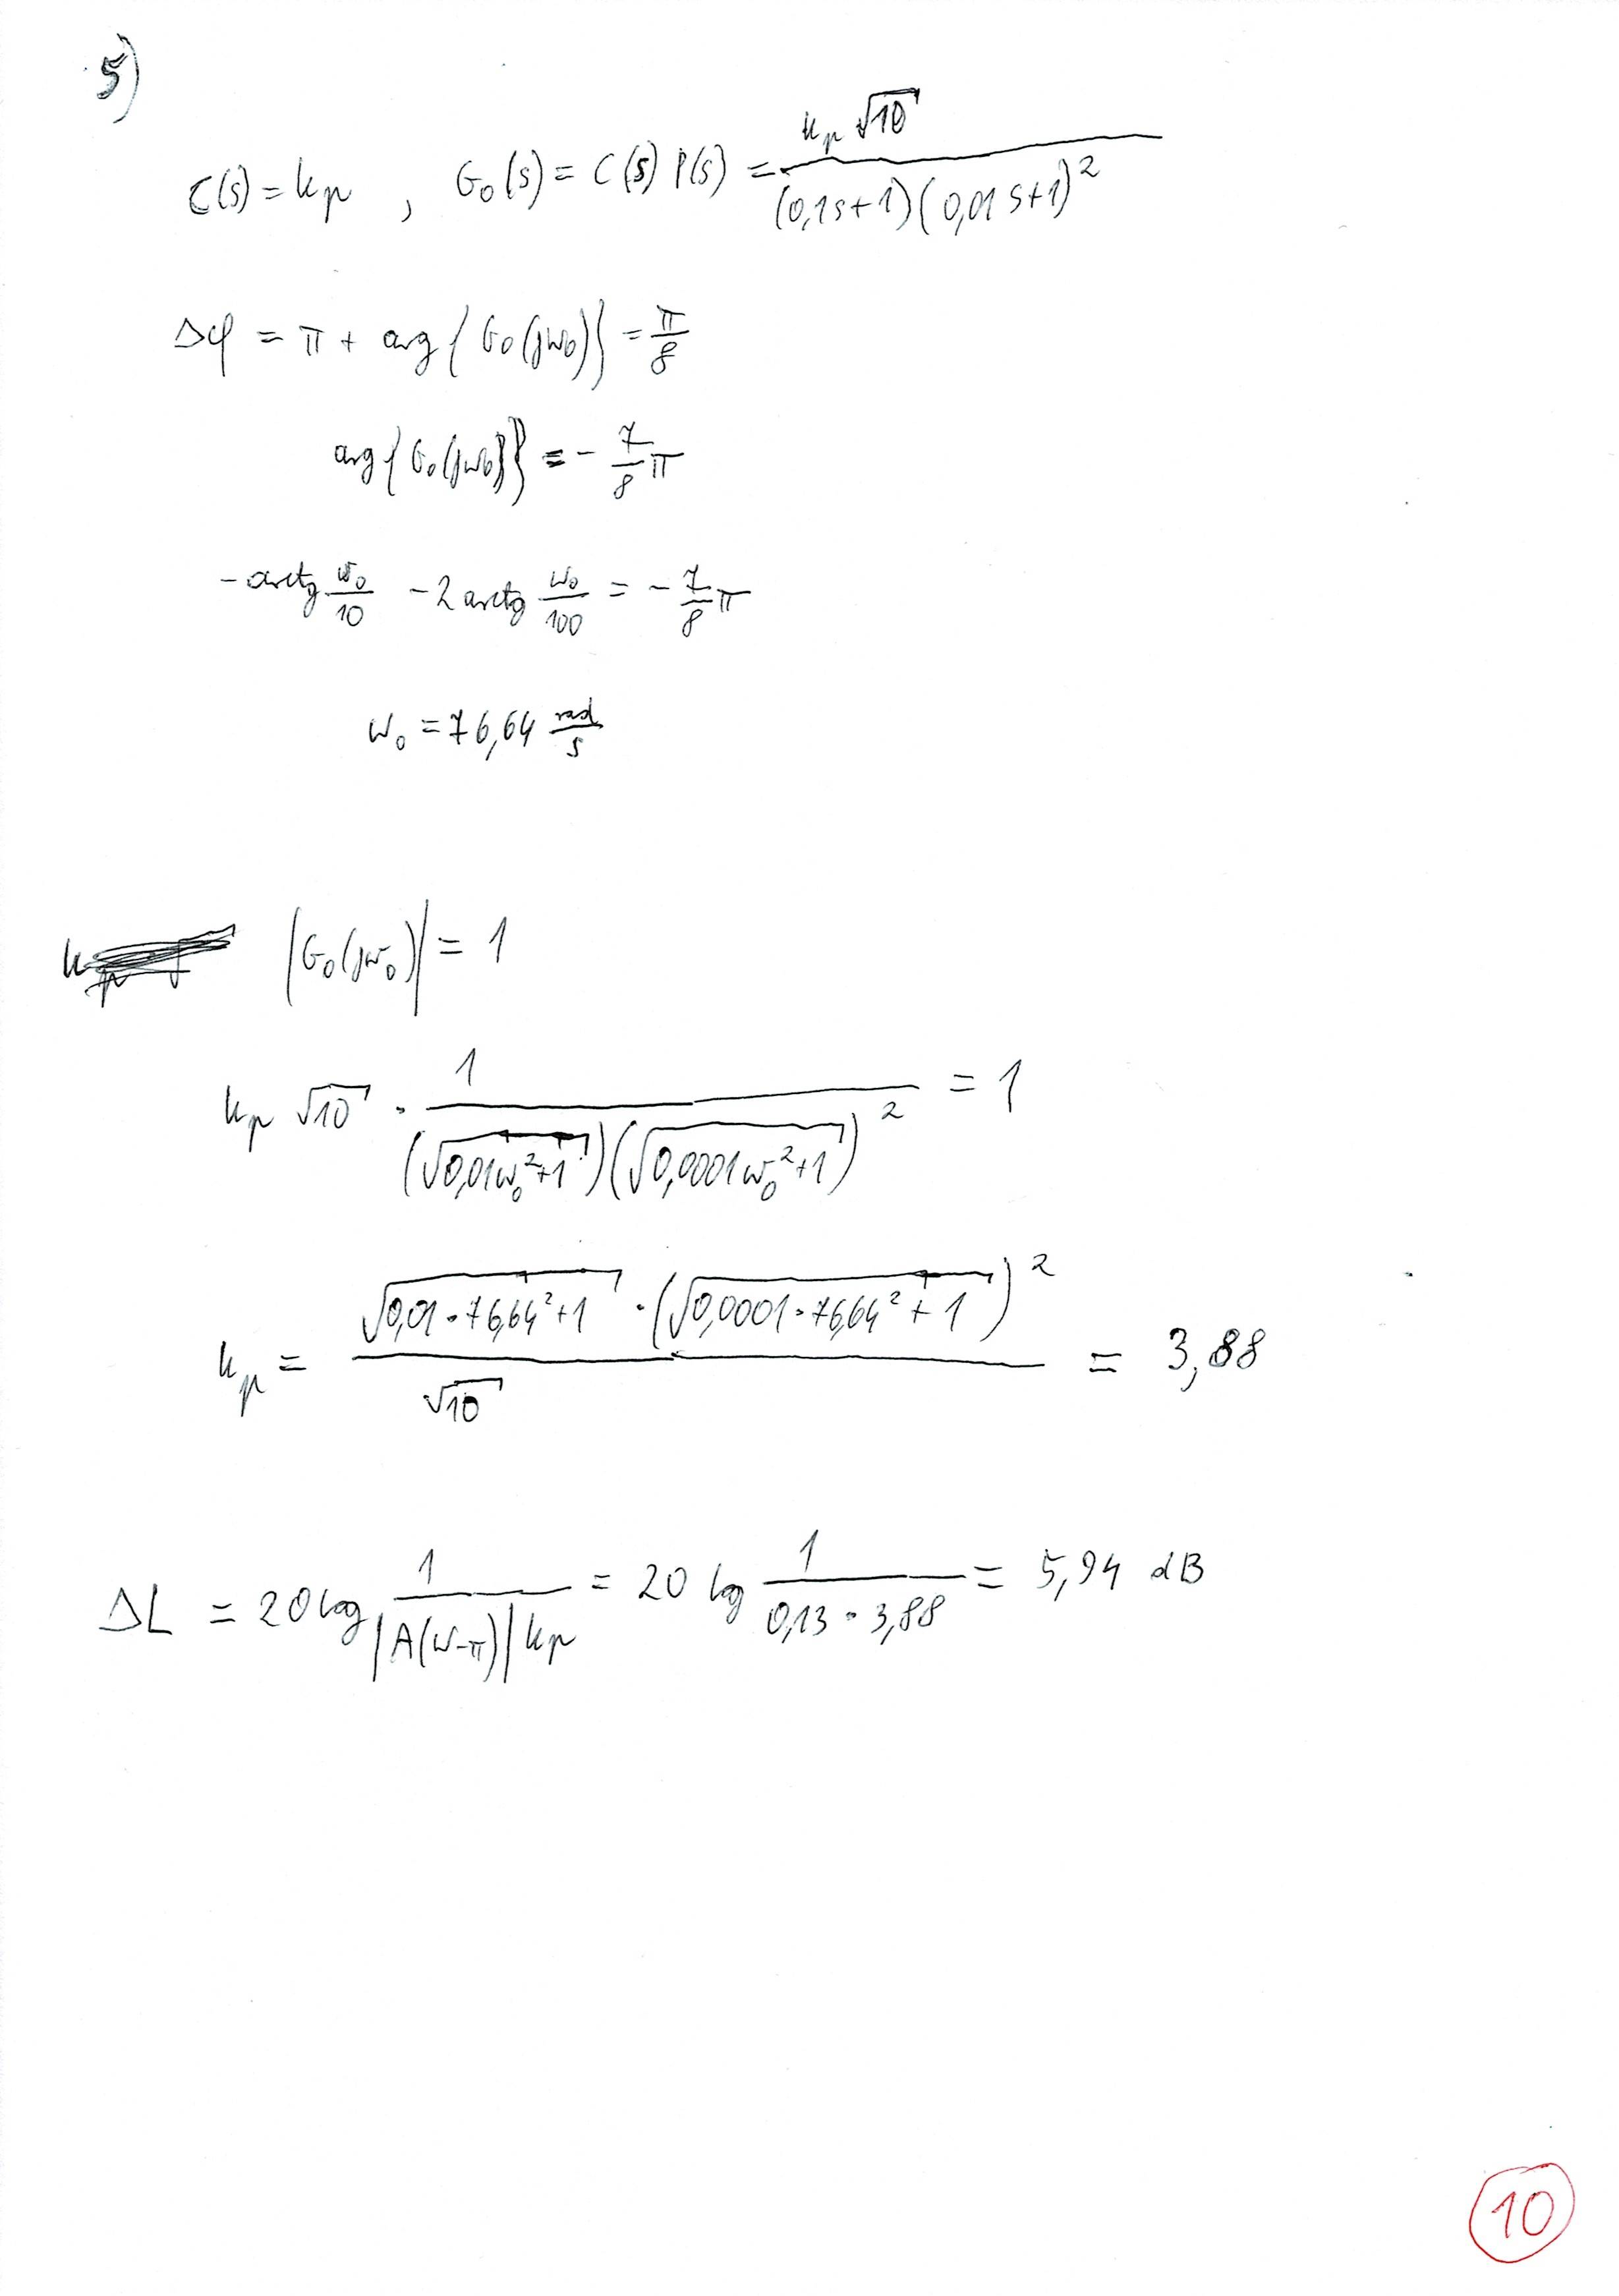 5)
C(s) = k_p , G_0(s) = C(s) P(s) = \frac{k_p \sqrt{10}}{(0,1s+1)(0,01s+1)^2}
Δφ = π + arg{G_0(jω_0)} = \frac{π}{8}
arg{G_0(jω_0)} = - \frac{7}{8} π
- arctg \frac{ω_0}{10} - 2 arctg \frac{ω_0}{100} = - \frac{7}{8} π
ω_0 = 76,64 \frac{rad}{s}
|G_0(jω_0)| = 1
k_p \sqrt{10} · \frac{1}{(\sqrt{0,01ω_0^2+1})(\sqrt{0,0001ω_0^2+1})^2} = 1
k_p = \frac{\sqrt{0,01·76,64^2+1} · (\sqrt{0,0001·76,64^2+1})^2}{\sqrt{10}} = 3,88
ΔL = 20 log \frac{1}{|A(ω_{-π})| k_p} = 20 log \frac{1}{0,13 · 3,88} = 5,94 dB
10